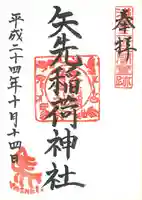 奉拝
矢先稲荷神社
平成二十四年十月十四日